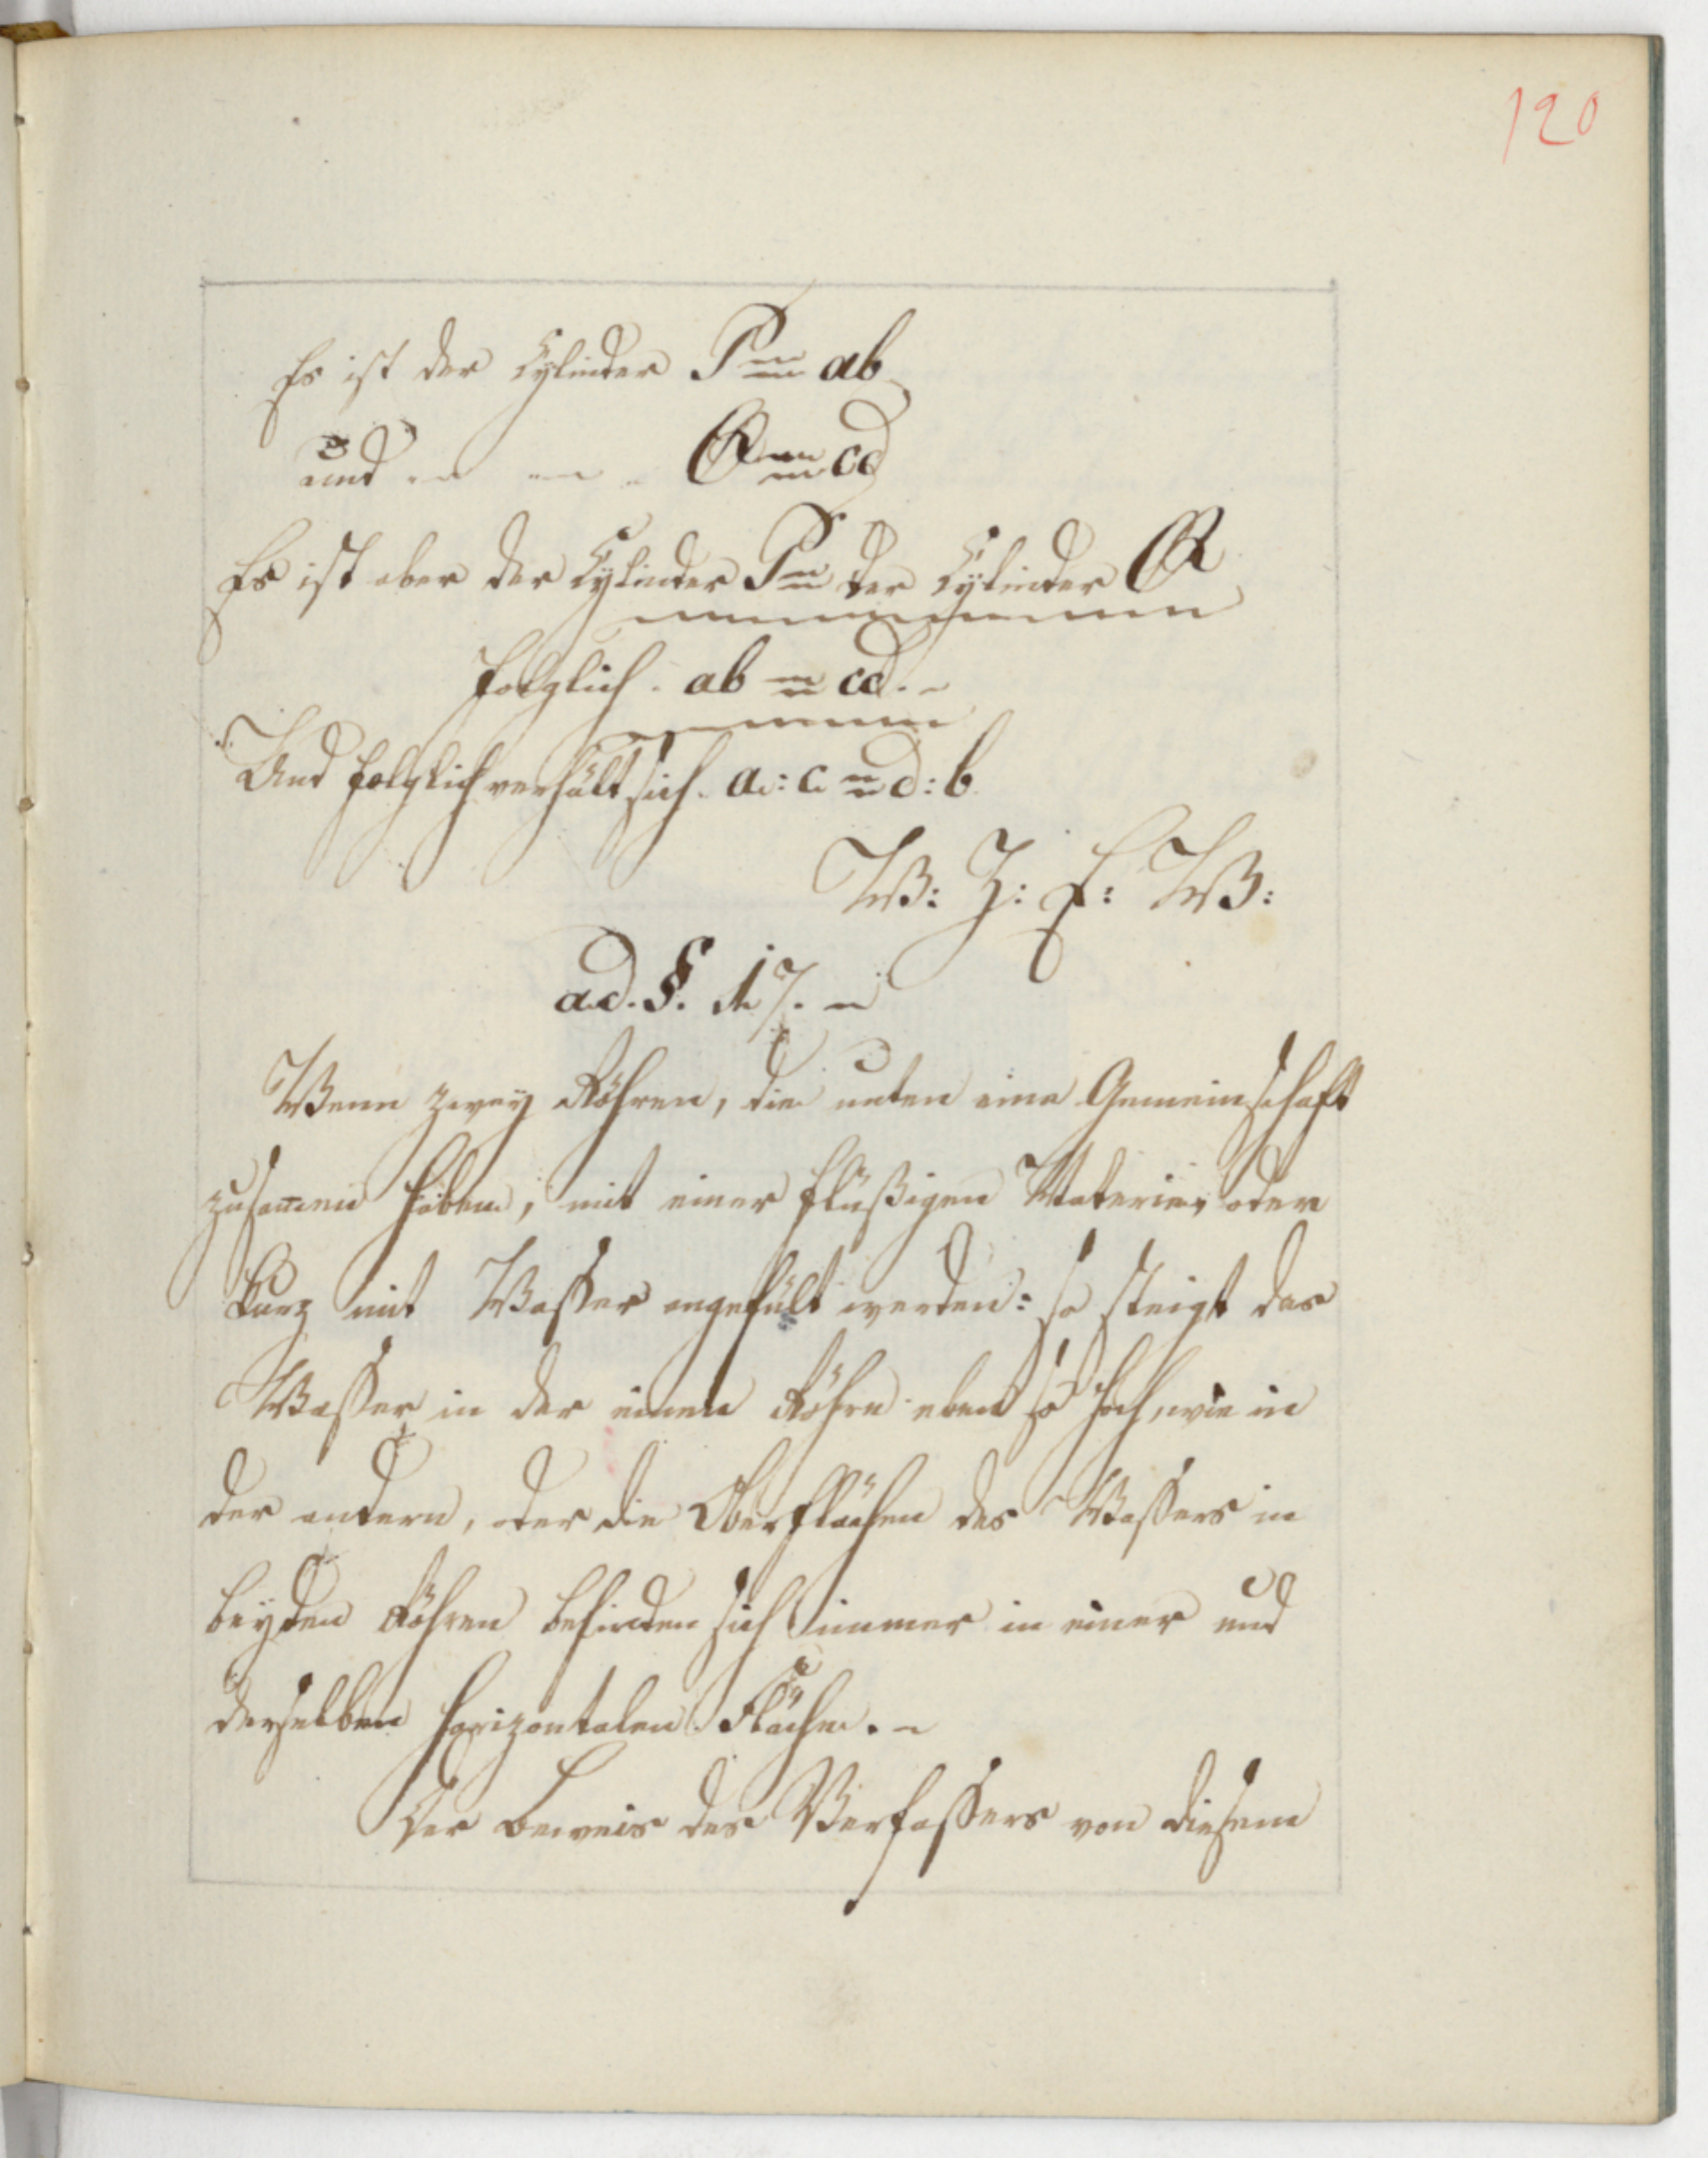 120
Es ist der Cylinder P = ab
und — — — Q = cd
Es ist aber der Cylinder P = der Cylinder Q
folglich. ab = cd. –
Und folglich verhält sich. a : c = d : b.
W: Z: E: W:
ad. §. 17. –
Wenn zwey Röhren, die unten eine Gemeinschaft
zusam̅en haben, mit einer flüßigen Materie, oder
kurz mit Waßer angefült werden: so steigt das
Waßer in der einen Röhre eben so hoch, wie in
der andern, oder die Oberflächen des Waßers in
beyden Röhren befinden sich immer in einer und
derselben horizontalen Fläche. –
Der Beweis des Verfaßers von diesem